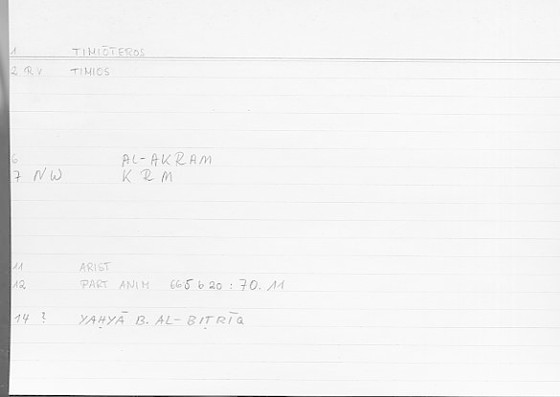 1 TIMIŌTEROS
2 RV TIMIOS
6 AL-AKRAM
7 NW KRM
11 ARIST
12 PART ANIM 665 b 20 : 70.11
14 ? YAḤYĀ B. AL-BIṬRĪQ